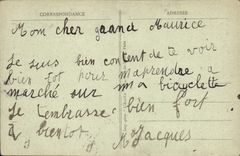 CORRESPONDANCE ADRESSE
Mom cher grand Maurice
Je suis bien content de te voir
bien tot pour m'aprendre a
marché sur ma bicyclette
Je t'embrasse bien fort
a bientot Jacques